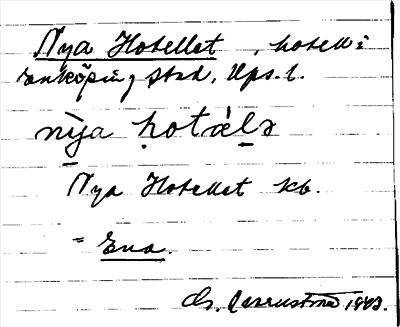 Nya Hotellet, hotell i
Enköping stad, Ups. l.
nỳa hotǽlə
Nya Hotellet kb.
= Ena.
1943.